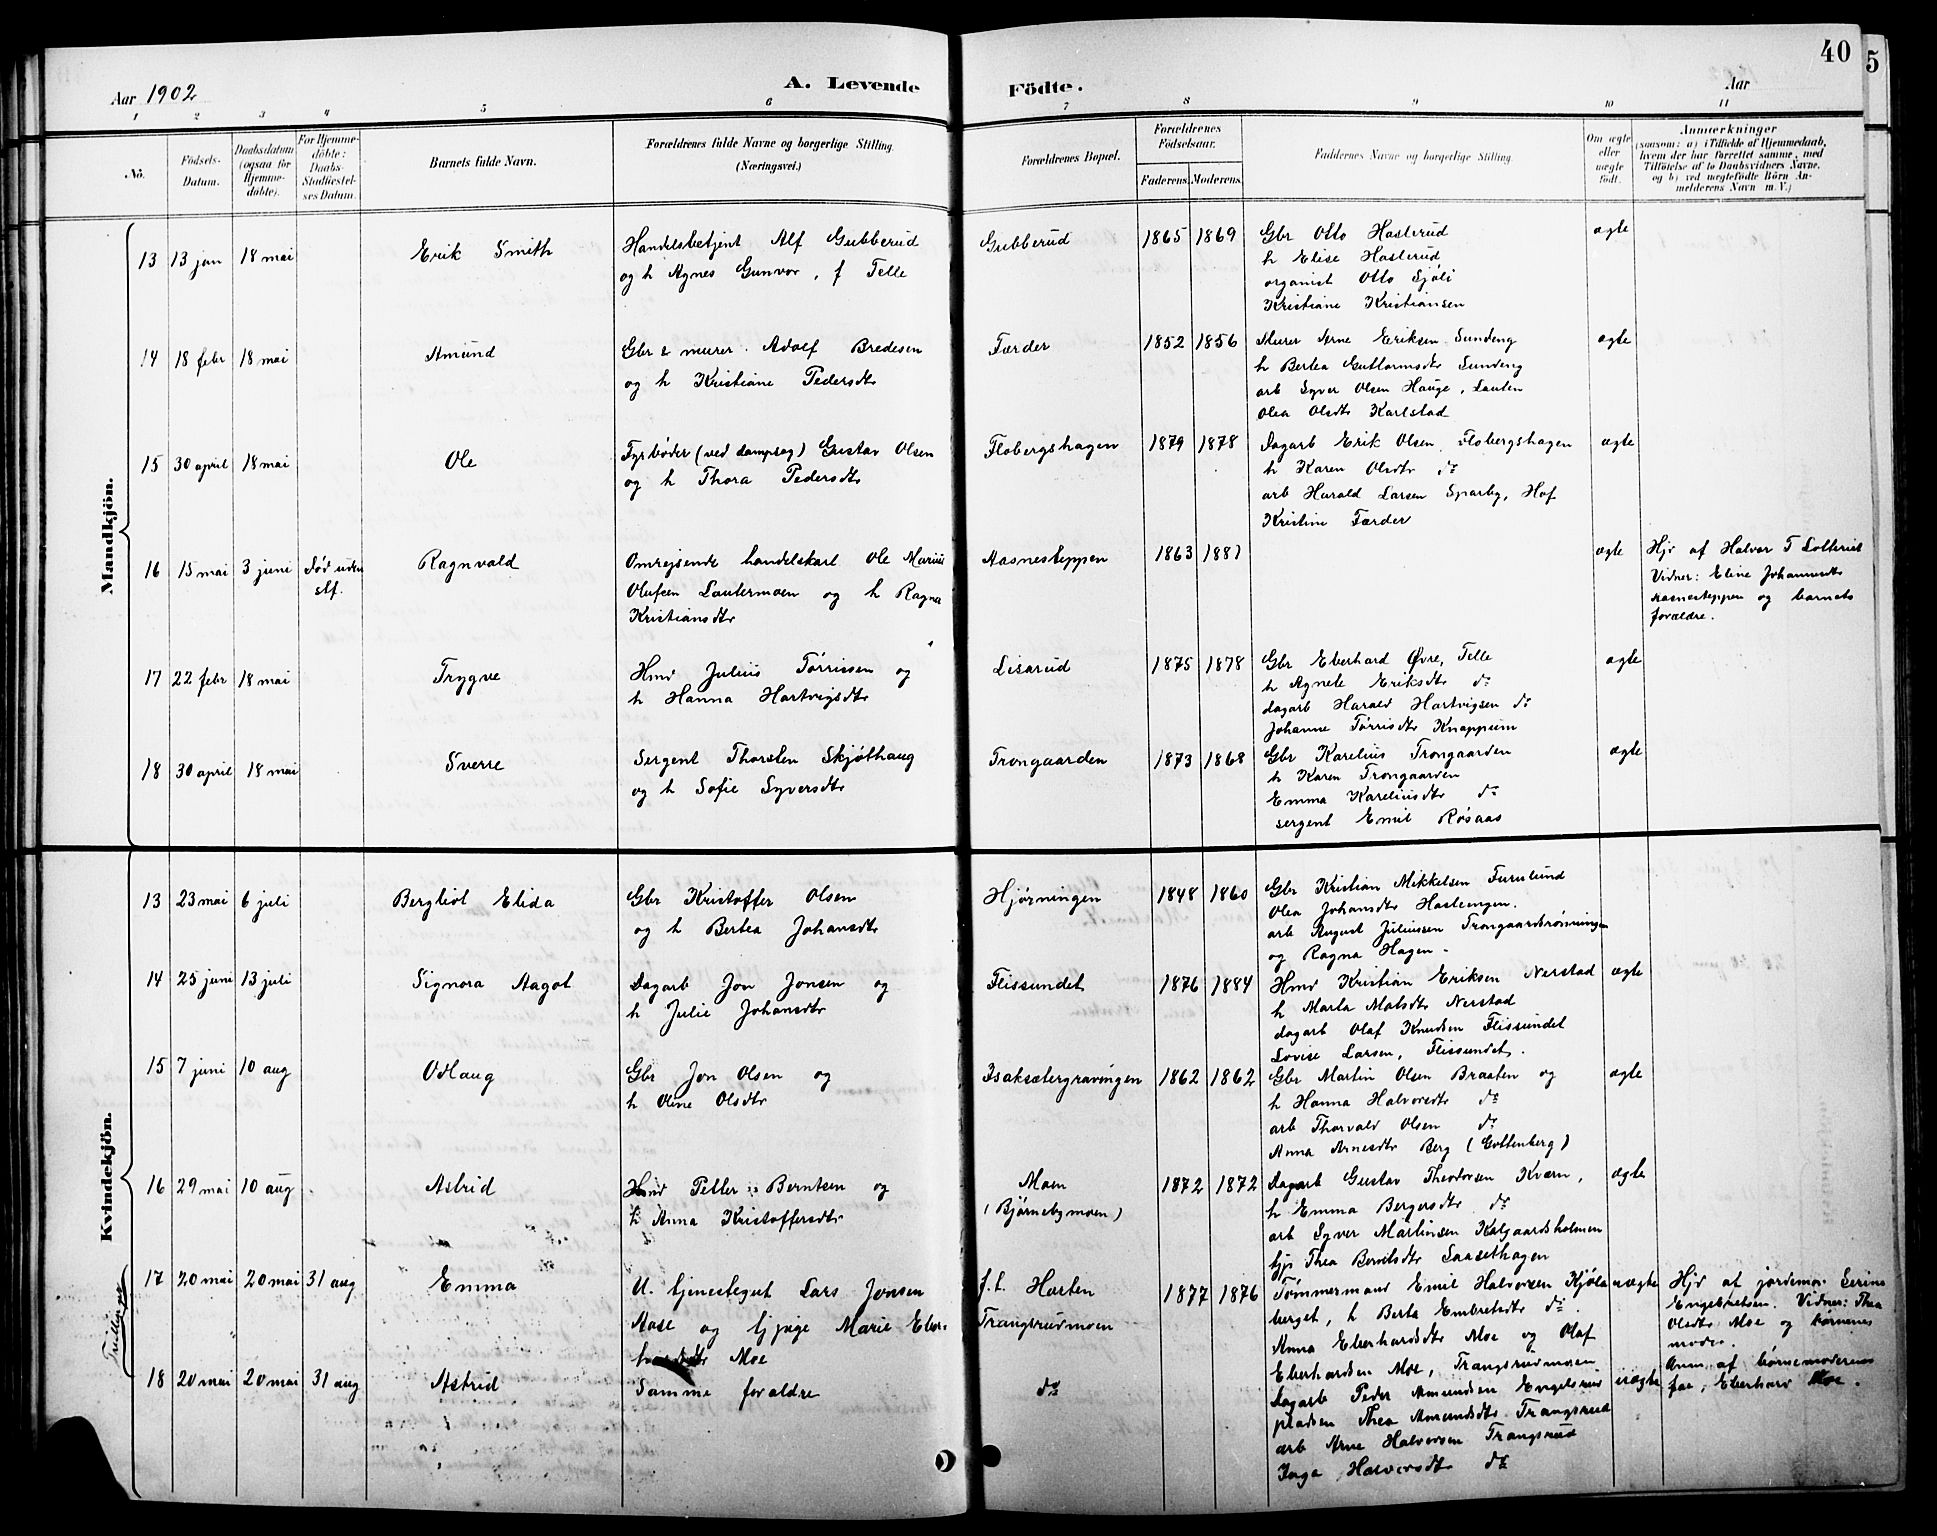 40
5
Aar 1902
A. Levende
Födte.
Aar
1 2 3 4 5 6 7 8 9 10 11
No.
Födsels-
Datum.
Daabsdatum
(ogsaa for
Hjemme-
döbte).
For Hjemme-
döbte:
Daabs-
Stadfæstel-
ses Datum.
Barnets fulde Navn.
Forældrenes fulde Navne og borgerlige Stilling.
(Næringsvei.)
Forældrenes Bopæl.
Forældrenes
Födselsaar.
Faderens. Moderens.
Faddernes Navne og borgerlige Stilling.
Om ægte
eller
uægte
født.
Anmærkninger
(saasom: a) i Tilfælde af Hjemmedaab,
hvem der har forrettet samme, med
Tilföielse af to Daabsvidners Navne,
og b) ved uægtefödte Börn An-
melderens Navn m. V.)
Mandkjön.
13 13 jan 18 mai Erik Smith
Handelsbetjent Alf Gubberud
og h Agnes Gunvor, f Telle
Gubberud 1865 1869
Gbr Otto Hasterud
h Elise Hasterud
organist Otto Sjøli
Kristiane Kristiansen
ægte
14 18 febr 18 mai Amund
Gbr & murer Adolf Bredesen
og h Kristiane Pedersdtr
Færder 1852 1856
Murer Arne Eriksen Sundeng
h Bertea Guttormsdtr Sundeng
arb Syver Olsen Hauge, Lauten
Olea Olsdtr Karlstad
ægte
15 30 april 18 mai Ole
Fyrbøder (ved dampsag) Gustav Olsen
og h Thora Pedersdtr
Flobergshagen 1879 1878
Dagarb Erik Olsen Flobergshagen
h Karen Olsdtr do
arb Harald Larsen Sparby, Hof
Kristine Færder
ægte
16 15 mai 3 juni Død uden
stf.
Ragnvald
Omreisende handelskarl Ole Marius
Olufsen Lautermoen og h Ragna
Kristiansdtr
Aasnesteppen 1863 1881
ægte
Hjd af Halvor T Lotteriet
Vidner: Eline Johannesdtr
Aasnesteppen og barnets
forældre.
17 22 febr 18 mai Trygve
Hmd Julius Tørrissen og
h Hanna Hartvigsdtr
Lisarud 1875 1878
Gbr Eberhard Øvre, Telle
h Agnete Eriksdtr do
dagarb Harald Hartvigsen do
Johanne Tørrisdtr Knappum
ægte
18 30 april 18 mai Sverre
Sergent Thorsten Skjøthaug
og h Sofie Syversdtr
Trongaarden 1873 1868
Gbr Karelius Trongaarden
h Karen Trongaarden
Emma Kareliusdtr do
sergent Emil Røsaas
ægte
Kvindekjön.
13 23 mai 6 juli Bergliot Elida
Gbr Kristoffer Olsen
og h Bertea Johansdtr
Hjørningen 1848 1860
Gbr Kristian Mikkelsen Furulund
Olea Johansdtr Haslengen.
arb August Juliussen Trongaardsrønningen
og Ragna Hagen.
14 25 juni 13 juli Signora Aagot
Dagarb Jon Jonsen og
h Julie Johansdtr
Flissundet 1876 1884
Hmd Kristian Eriksen Nerstad
h Marta Matsdtr Nerstad
dagarb Olaf Knudsen Flissundet
Lovise Larsen, Flissundet.
ægte
15 7 juni 10 aug Odlaug
Gbr Jon Olsen og
h Oline Olsdtr
Isaksætergravingen 1862 1862
Gbr Martin Olsen Braaten og
h Hanna Halvorsdtr do
arb Thorvald Olsen do
Anna Arnesdtr Berg (Gottenberg)
ægte
16 29 mai 10 aug Astrid
Hmd Petter Berntsen og
h Anna Kristoffersdtr
Moen
(Bjørnebymoen)
1872 1872
Dagarb Gustav Theodorsen Kværn,
h Emma Bergersdtr do
arb Syver Martinsen Kalgaardsholmen
tjp Thea Berntsdtr Saasethagen
ægte
Trillinger
17 20 mai 20 mai 31 aug Emma
U. tjenestegut Lars Jonsen
Aase og tjpige Marie Eber-
hardsdtr Moe
f.t. Harten
Trangsrudmoen
1877 1876
Tømmermand Emil Halvorsen Kjøla
berget, h Berta Embretsdtr do.
Anna Eberhardsdtr Moe og Olaf
Eberhardsen Moe, Trangsrudmoen
uægte
Hjd af jordemor Serine
Engebretsen. Vidner: Thea
Olsdtr Moe og børnenes
moder.
18 20 mai 20 mai 31 aug Astrid
Samme forældre
do
Dagarb Peder Amundsen Engelsrud
pladsen Thea Amundsdtr Trangsrud
arb Arne Halvorsen Trangsrud
Inga Halvorsdtr do
uægte
Anm af børnemoderens
far, Eberhard Moe.